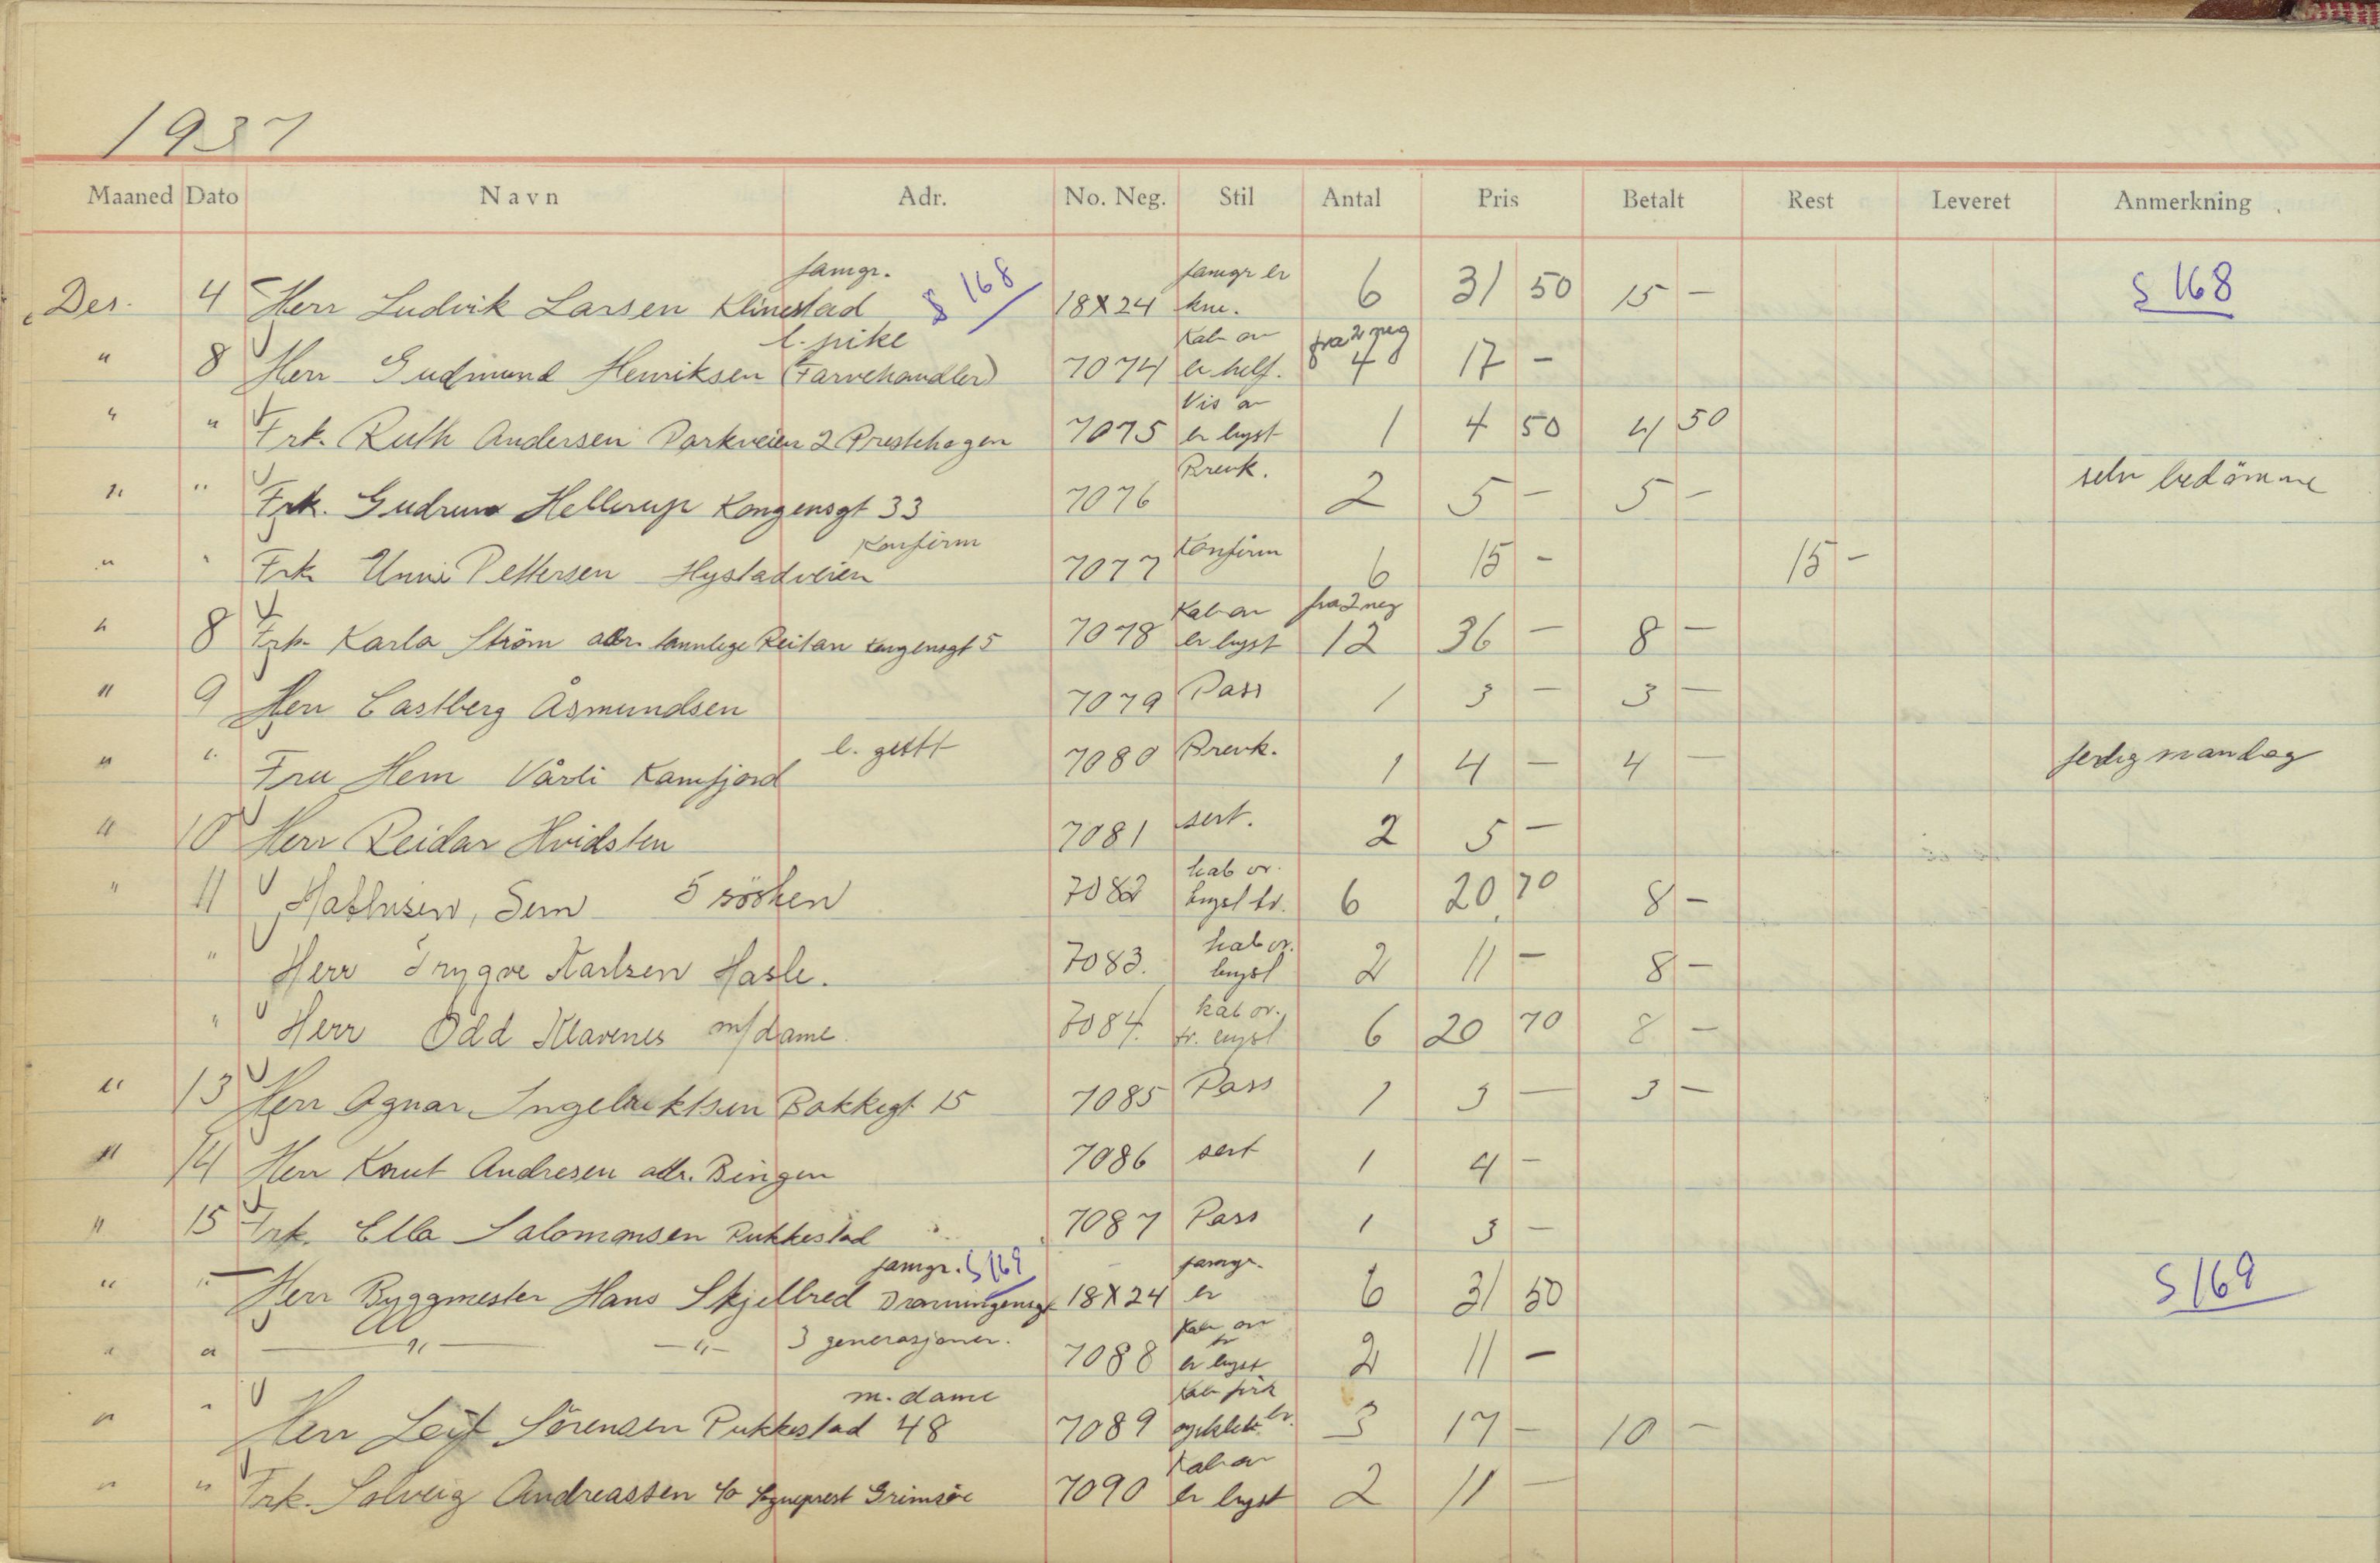 1937
Maaned Dato Navn Adr. No. Neg. Stil Antal Pris Betalt Rest Leveret Anmerkning
famgr. famgr er
Des. 4 Herr Ludvik Larsen Klinestad S 168 18X24 kne. 6 31 50 15 - S 168
l. pike Kab or fra 2 neg
" 8 Herr Gudmund Henriksen (Farvehandler) 7074 er helf. 4 17 -
Vis or
" " Frk. Ruth Andersen Parkveien 2 Prestehagen 7075 er bryst 1 4 50 4 50
Brevk.
" " Frk. Gudrun Hellerup Kongensgt 33 7076 2 5 - 5 - selv bedömme
Konfirm
" " Frk Unni Pettersen Hystadveien 7077 Konfirm 6 15 - 15 -
Kab or fra 2 neg
" 8 Frk. Karla Ström adr. tannlege Reitan Kongensgt 5 7078 er bryst 12 36 - 8 -
" 9 Herr Castberg Åsmundsen 7079 Pass 1 3 - 3 -
" " Fru Hem Vårli Kamfjord l. gutt 7080 Brevk. 1 4 - 4 - ferdig mandag
" 10 Herr Reidar Hvidsten 7081 sert. 2 5 -
kab or.
" 11 Mathisen, Sem 5 sösken 7082 bryst br. 6 20 70 8 -
kab or.
" Herr Trygve Karlsen Hasle. 7083. bryst 2 11 - 8 -
kab or.
" Herr Odd Klavenes m/dame. 7084. br. bryst 6 20 70 8 -
" 13 Herr Agnar Ingebrektsen Bakkegt 15 7085 Pass 1 3 - 3 -
" 14 Herr Knut Andresen adr. Bingen 7086 sert 1 4 -
" 15 Frk. Ella Salomonsen Pukkestad 7087 Pass 1 3 -
famgr. S 169 famgr.
" " Herr Byggmester Hans Skjelbred Dronningensgt 18X24 er 6 31 50 S 169
Kab or
" " — " — — " — 3 generasjoner. 7088 er br bryst 2 11 -
m. dame Kab
" " Herr Leif Sörensen Pukkestad 48 7089 br. 3 17 - 10 -
Kab or
" " Frk. Solveig Andreassen c/o Sogneprest Grimsöe 7090 er bryst 2 11 -